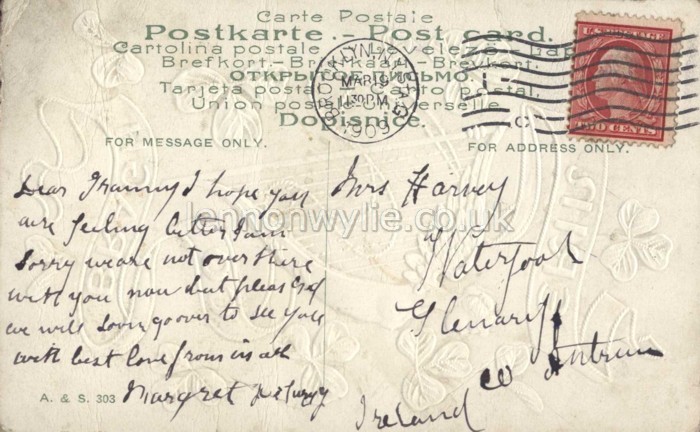 Carte Postale
Postkarte.- Post card.
Cartolina postale - Levelező-Lap
Brefkort.- Briefkaart.- Brevkort.
ОТКРЫТОЕ ПИСЬМО.
Tarjeta postal. postal.
Union postale universelle.
Dopisnice.
BROOKLYN, N.Y.
MAR 19
1130 PM
1909
C
TWO CENTS
FOR MESSAGE ONLY.
FOR ADDRESS ONLY.
Dear Granny I hope you
are feeling better I am
Sorry we are not over there
with you now but please God
we will soon go over to see you
with best love from us all
Margret
Mrs Harvey
Waterfoot
Glenariff
Co Antrim
Ireland
A. & S. 303
lennonwylie.co.uk